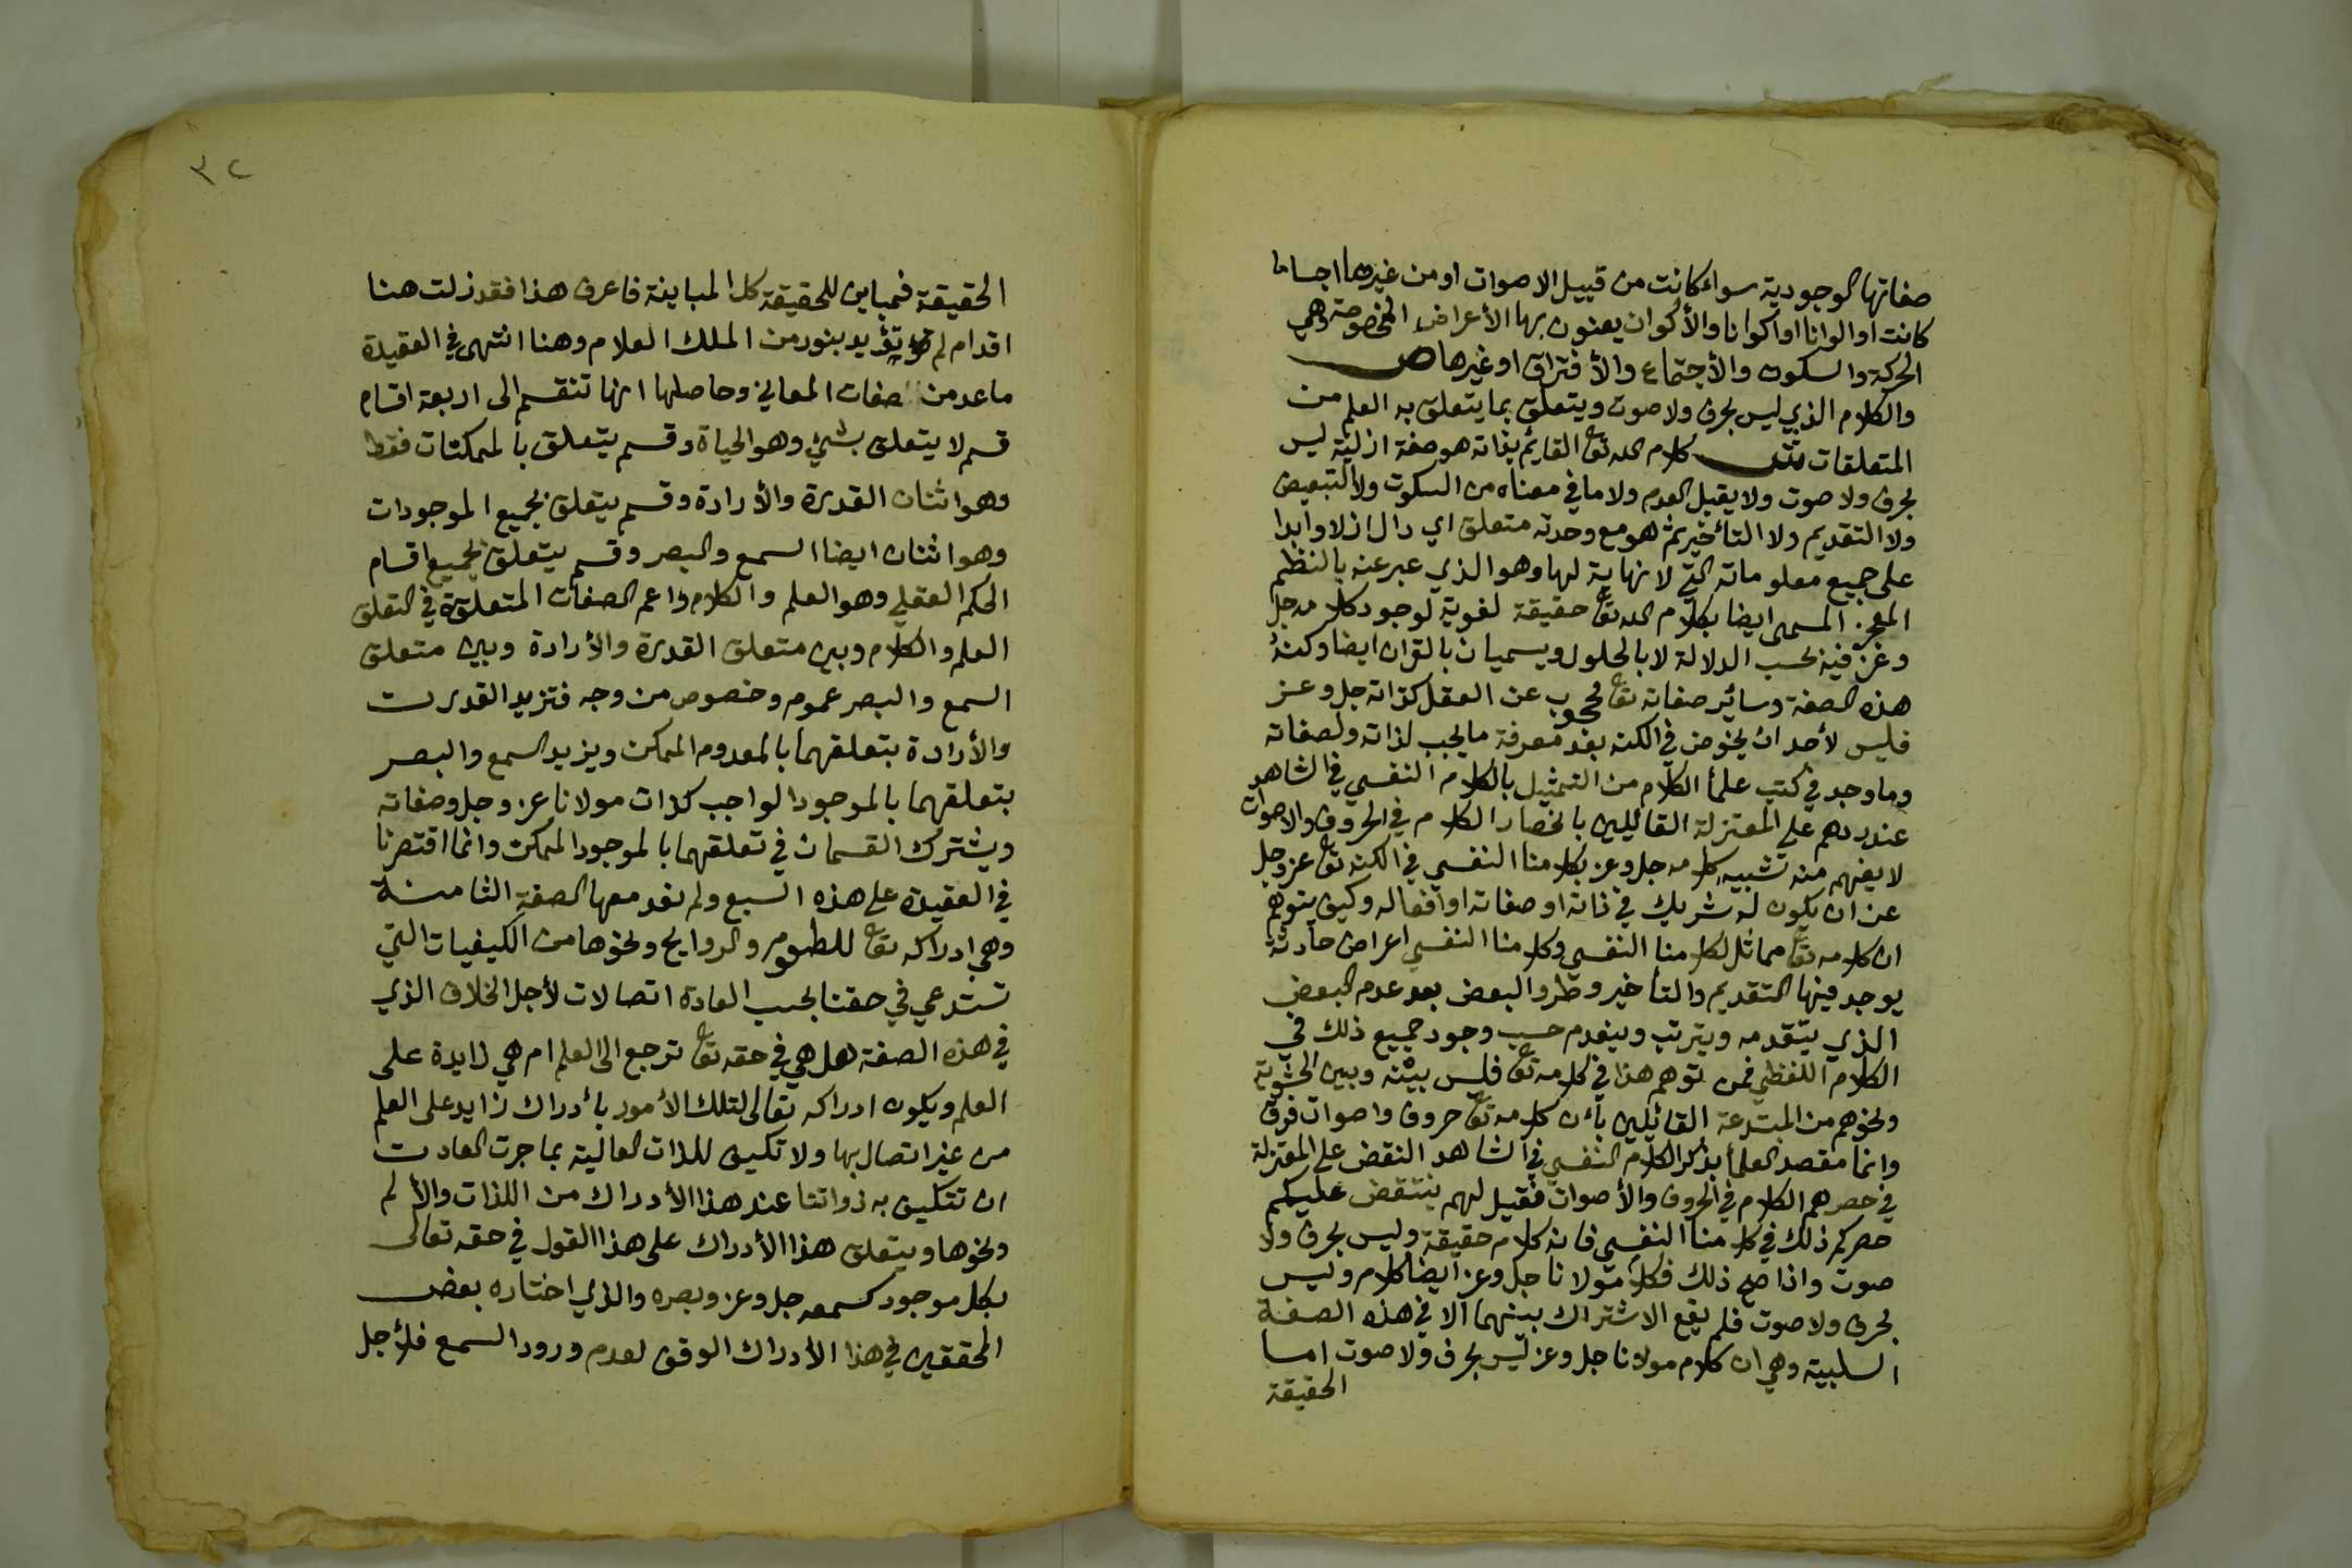 صفاتها الوجودية سواء كانت من قبيل الاصوات او من غيرها اجساما
كانت او الوانا او اكوانا والأكوان يعنون بها الأعراض المخصوصة وهي
الحركة والسكون والأجتماع والأفتراق او غيرها ص
والكلام الذي ليس بحرف ولا صوت ويتعلق بما يتعلق به العلم من
المتعلقات ش كلام الله تع القايم بذاته هو صفة ازلية ليس
بحرف ولا صوت ولا يقبل العدم ولا ما في معناه من السكوت ولا التبعيض
ولا التقديم ولا التأخير ثم هو مع وحدته متعلق اي دال ازلا وابدا
على جميع معلوماته التي لا نهاية لها وهو الذي عبر عنه بالنظم
المعجز المسمى ايضا بكلام الله تع حقيقة لغوية لوجود كلامه جل
وعز فيه بحسب الدلالة لا بالحلول ويسميان بالقران ايضا وكنه
هذه الصفة وسائر صفاته تع محجوب عن العقل كذاته جل وعز
فليس لأحد ان يخوض في الكنه بعد معرفة ما يجب لذاته ولصفاته
وما وجد في كتب علمأ الكلام من التمثيل بالكلام النفسي في الشاهد
عند ردهم على المعتزلة القائلين بانحصار الكلام في الحروف والاصوات
لا يفهم منه تشبيه كلامه جل وعز بكلامنا النفسي في الكنه تع عز وجل
عن ان يكون له شريك في ذاته او صفاته او افعاله وكيف يتوهم
ان كلامه تع مماثل لكلامنا النفسي وكلامنا النفسي اعراض حادثة
يوجد فيها التقديم والتأخير وطرو البعض بعد عدم البعض
الذي يتقدمه ويترتب وينعدم حسب وجود جميع ذلك في
الكلام اللفظي فمن توهم هذا في كلامه تع فليس بينه وبين الحشوية
ونحوهم من المبتدعة القائلين بأن كلامه تع حروف واصوات فرق
وانما مقصد العلمأ بذكر الكلام النفسي في الشاهد النقض على المعتزلة
في حصرهم الكلام في الحروف والأصوات فقيل لهم ينتقض عليكم
حصركم ذلك في كلامنا النفسي فانه كلام حقيقة وليس بحرف ولا
صوت واذا صح ذلك فكلام مولانا جل وعز ايضا كلام وليس
بحرف ولا صوت فلم يقع الاشتراك بينهما الا في هذه الصفة
السلبية وهي ان كلام مولانا جل وعز ليس بحرف ولا صوت اما
الحقيقة
٣٢
الحقيقة فمباين للحقيقة كل المباينة فاعرف هذا فقد زلت هنا
اقدام لم تؤيد بنور من الملك العلام وهنا انتهى في العقيدة
ما عد من صفات المعاني وحاصلها انها تنقسم الى اربعة اقسام
قسم لا يتعلق بشئ وهو الحياة وقسم يتعلق بالممكنات فقط
وهو اثنان القدرة والأرادة وقسم يتعلق بجميع الموجودات
وهو اثنان ايضا السمع والبصر وقسم يتعلق بجميع اقسام
الحكم العقلي وهو العلم والكلام واعم الصفات المتعلقة في التعلق
العلم والكلام وبين متعلق القدرة والأرادة وبين متعلق
السمع والبصر عموم وخصوص من وجه فتزيد القدرت
والأرادة بتعلقهما بالمعدوم الممكن ويزيد السمع والبصر
بتعلقهما بالموجود الواجب كذات مولانا عز وجل وصفاته
ويشترك القسمان في تعلقهما بالموجود الممكن وانما اقتصرنا
في العقيدة على هذه السبع ولم نعد معها الصفة الثامنة
وهي ادراكه تع للطعوم والروايح ونحوها من الكيفيات التي
تستدعي في حقنا بحسب العادة اتصالات لأجل الخلاف الذي
في هذه الصفة هل هي في حقه تع ترجع الى العلم ام هي زايدة على
العلم ويكون ادراكه تعالى لتلك الأمور بأدراك زايد على العلم
من غير اتصال بها ولا تكيف للذات العالية بما جرت العادت
ان تتكيف به ذواتنا عند هذا الأدراك من اللذات والألم
ونحوها ويتعلق هذا الأدراك على هذا القول في حقه تعالى
بكل موجود كسمعه جل وعز وبصره والذي اختاره بعض
المحققين في هذا الأدراك الوقف لعدم ورود السمع فلأجل